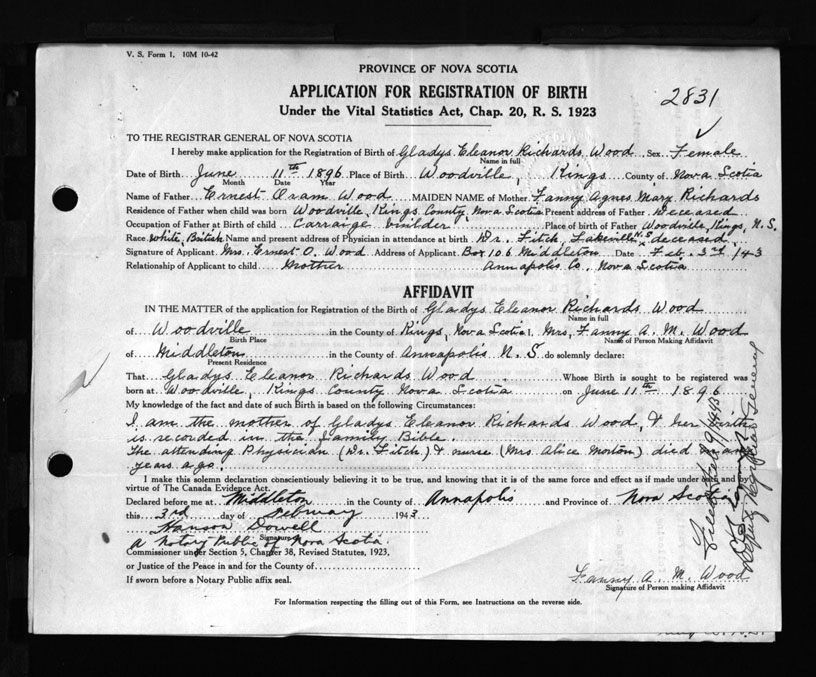 V. S. Form 1. 10M 10-42
PROVINCE OF NOVA SCOTIA
APPLICATION FOR REGISTRATION OF BIRTH
Under the Vital Statistics Act, Chap. 20, R. S. 1923
2831
TO THE REGISTRAR GENERAL OF NOVA SCOTIA
I hereby make application for the Registration of Birth of Gladys Eleanor Richards Wood Sex Female
Name in full
Date of Birth June 11th 1896 Place of Birth Woodville, Kings County of Nova Scotia
Month Date Year
Name of Father Ernest Oram Wood MAIDEN NAME of Mother Fanny Agnes Mary Richards
Residence of Father when child was born Woodville, Kings County, Nova Scotia Present address of Father deceased
Occupation of Father at Birth of child Carraige builder Place of birth of Father Woodville, Kings, N. S.
Race white, British Name and present address of Physician in attendance at birth Dr. Fitch, Lakeville N.S. deceased
Signature of Applicant Mrs. Ernest O. Wood Address of Applicant Box 106 Middleton Date Feb. 3rd 1943
Relationship of Applicant to child Mother Annapolis Co., Nova Scotia
AFFIDAVIT
IN THE MATTER of the application for Registration of the Birth of Gladys Eleanor Richards Wood
Name in full
of Woodville in the County of Kings, Nova Scotia I, Mrs. Fanny A. M. Wood
Birth Place Name of Person Making Affidavit
of Middleton in the County of Annapolis N. S do solemnly declare:
Present Residence
That Gladys Eleanor Richards Wood Whose Birth is sought to be registered was
born at Woodville, Kings County Nova Scotia on June 11th 1896
My knowledge of the fact and date of such Birth is based on the following Circumstances:
I am the mother of Gladys Eleanor Richards Wood, & her birth
is recorded in the Family Bible.
The attending Physician (Dr. Fitch) & nurse (Mrs Alice Morton) died many
years ago.
I make this solemn declaration conscientiously believing it to be true, and knowing that it is of the same force and effect as if made under oath and
virtue of The Canada Evidence Act.
Declared before me at Middleton in the County of Annapolis and Province of Nova Scotia
this 3rd day of February 1943
Hanson Dowell
Signature
a Notary Public of Nova Scotia.
Commissioner under Section 5, Chapter 38, Revised Statutes, 1923,
or Justice of the Peace in and for the County of
If sworn before a Notary Public affix seal.
Fanny A. M. Wood
Signature of Person making Affidavit
For Information respecting the filling out of this Form, see Instructions on the reverse side.
Deputy Registrar General